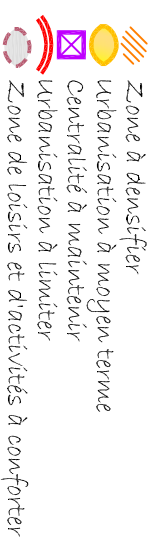 Zone à densifier
Urbanisation à moyen terme
Centralité à maintenir
Urbanisation à limiter
Zone de loisirs et d'activités à conforter